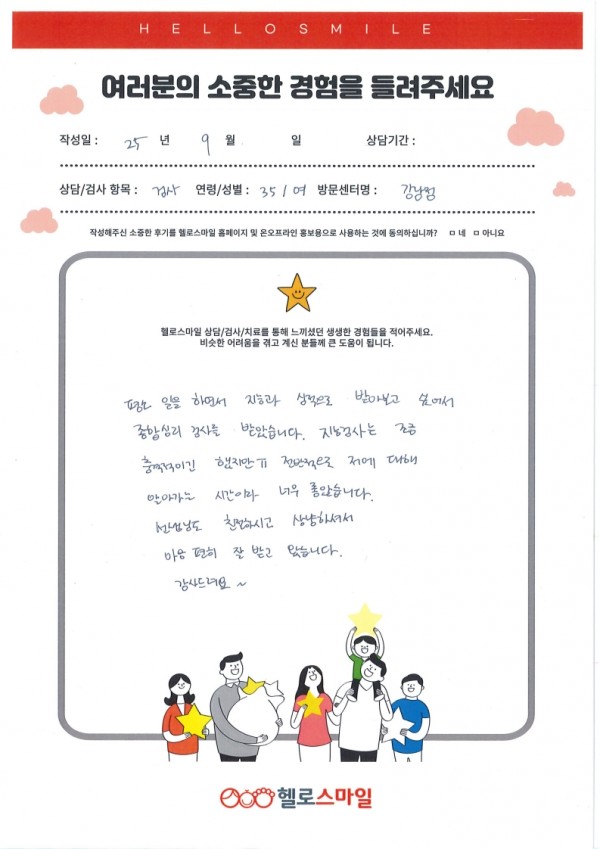 HELLOSMILE
여러분의 소중한 경험을 들려주세요
작성일 : 25 년 9 월 일 상담기간 :
상담/검사 항목 : 검사 연령/성별 : 35 / 여 방문센터명 : 강남점
작성해주신 소중한 후기를 헬로스마일 홈페이지 및 온오프라인 홍보용으로 사용하는 것에 동의하십니까? ㅁ 네 ㅁ 아니요
헬로스마일 상담/검사/치료를 통해 느끼셨던 생생한 경험들을 적어주세요.
비슷한 어려움을 겪고 계신 분들께 큰 도움이 됩니다.
평소 일을 하면서 지능과 성격으로 받아보고 싶어서
종합심리 검사를 받았습니다. 지능검사는 조금
충격적이긴 했지만ㅠ 전반적으로 저에 대해
알아가는 시간이라 너무 좋았습니다.
선생님도 친절하시고 상냥하셔서
마음 편히 잘 받고 왔습니다.
감사드려요 ~
헬로스마일